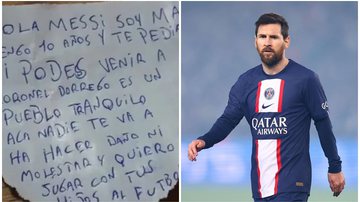 OLA MESSI SOY MA
ENGO 10 AÑOS Y TE PEDI
I PODES VENIR A
ORONEL DORREGO ES UN
PUEBLO TRANQUILO
ACA NADIE TE VA A
HA HACER DAÑO NI
MOLESTAR Y QUIERO
JUGAR CON TUS
HIJOS AL FUTBO
QATAR
AIRWAYS